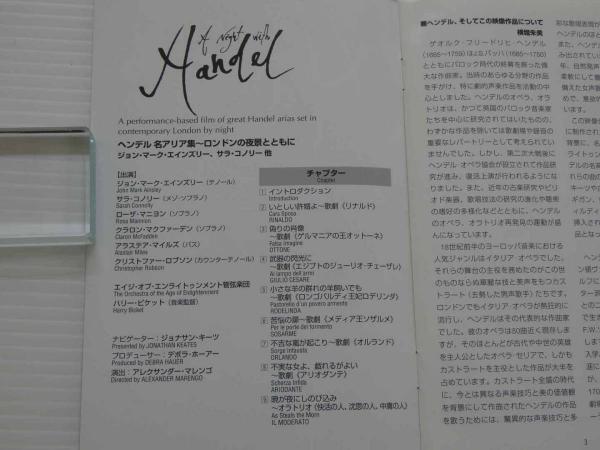 A Night with
Handel
A performance-based film of great Handel arias set in
contemporary London by night
ヘンデル 名アリア集〜ロンドンの夜景とともに
ジョン・マーク・エインズリー、サラ・コノリー 他
[出演]
ジョン・マーク・エインズリー(テノール)
John Mark Ainsley
サラ・コノリー(メゾ・ソプラノ)
Sarah Connolly
ローザ・マニヨン(ソプラノ)
Rosa Mannion
クラロン・マクファーデン(ソプラノ)
Claron McFadden
アラステア・マイルズ(バス)
Alastair Miles
クリストファー・ロブソン(カウンターテノール)
Christopher Robson
エイジ・オブ・エンライトゥンメント管弦楽団
The Orchestra of the Age of Enlightenment
ハリー・ビケット(音楽監督)
Harry Bicket
ナビゲーター:ジョナサン・キーツ
Presented by JONATHAN KEATES
プロデューサー:デボラ・ホーアー
Produced by DEBRA HAUER
演出:アレクサンダー・マレンゴ
Directed by ALEXANDER MARENGO
チャプター
Chapter
1 イントロダクション
Introduction
2 いとしい許婚よ〜歌劇《リナルド》
Cara Sposa
RINALDO
3 偽りの肖像
〜歌劇《ゲルマニアの王オットーネ》
Falsa Imagine
OTTONE
4 武器の閃光に
〜歌劇《エジプトのジューリオ・チェーザレ》
Al lampo dell'armi
GIULIO CESARE
5 小さな羊の群れの羊飼いでも
〜歌劇《ロンゴバルディ王妃ロデリンダ》
Pastorello d'un povero armento
RODELINDA
6 苦悩の扉〜歌劇《メディア王ソザルメ》
Per le porte del tormento
SOSARME
7 不吉な嵐が起こり〜歌劇《オルランド》
Sorge infausta
ORLANDO
8 不実な女よ、戯れるがよい
〜歌劇《アリオダンテ》
Scherza Infida
ARIODANTE
9 暁が夜にしのび込み
〜オラトリオ《快活の人、沈思の人、中庸の人》
As Steals the Morn
IL MODERATO
■ヘンデル、そしてこの映像作品について
横堀朱美
ゲオルク・フリードリヒ・ヘンデル
(1685〜1759)はJ.S.バッハ(1685〜1750)
とともにバロック時代の終幕を飾った偉
大な作曲家。当時のあらゆる分野の作品
を手がけ、特に劇的声楽作品を活動の中
心としました。ヘンデルのオペラ、オラ
トリオは、かつて英国のバロック音楽家
たちを中心に研究されてはいたものの、
わずかな作品を除いては歌劇場や録音の
重要なレパートリーとして考えられてい
ませんでした。しかし、第二次大戦後に
ヘンデル・オペラ協会が設立されて作品研
究が進み、復活上演が行われるようにな
りました。また、近年の古楽研究やピリ
オド楽器、歌唱技法の研究の進化や聴衆
の嗜好の多様化などとともに、ヘンデル
のオペラ、オラトリオ再発見の運動が盛
んになっています。
18世紀前半のヨーロッパ音楽における
人気ジャンルはイタリア・オペラでした。
それらの舞台の主役を務めたのがこの世
のものならぬ華麗な技と美声をもつカス
トラート(去勢した男声歌手)たちです。
ロンドンでもイタリア・オペラが熱狂的に
流行し、ヘンデルはその代表的な作曲家
でした。彼のオペラは50曲近く現存しま
すが、そのほとんどが古代や中世の英雄
を主人公としたオペラ・セリアで、しかも
カストラートを主役とした作品が大半を
占めています。カストラート全盛の時代
に、今とは異なる声楽技巧と美の価値観
を背景にして作曲されたヘンデルの作品
を歌うためには、驚異的な声楽技巧と多
3